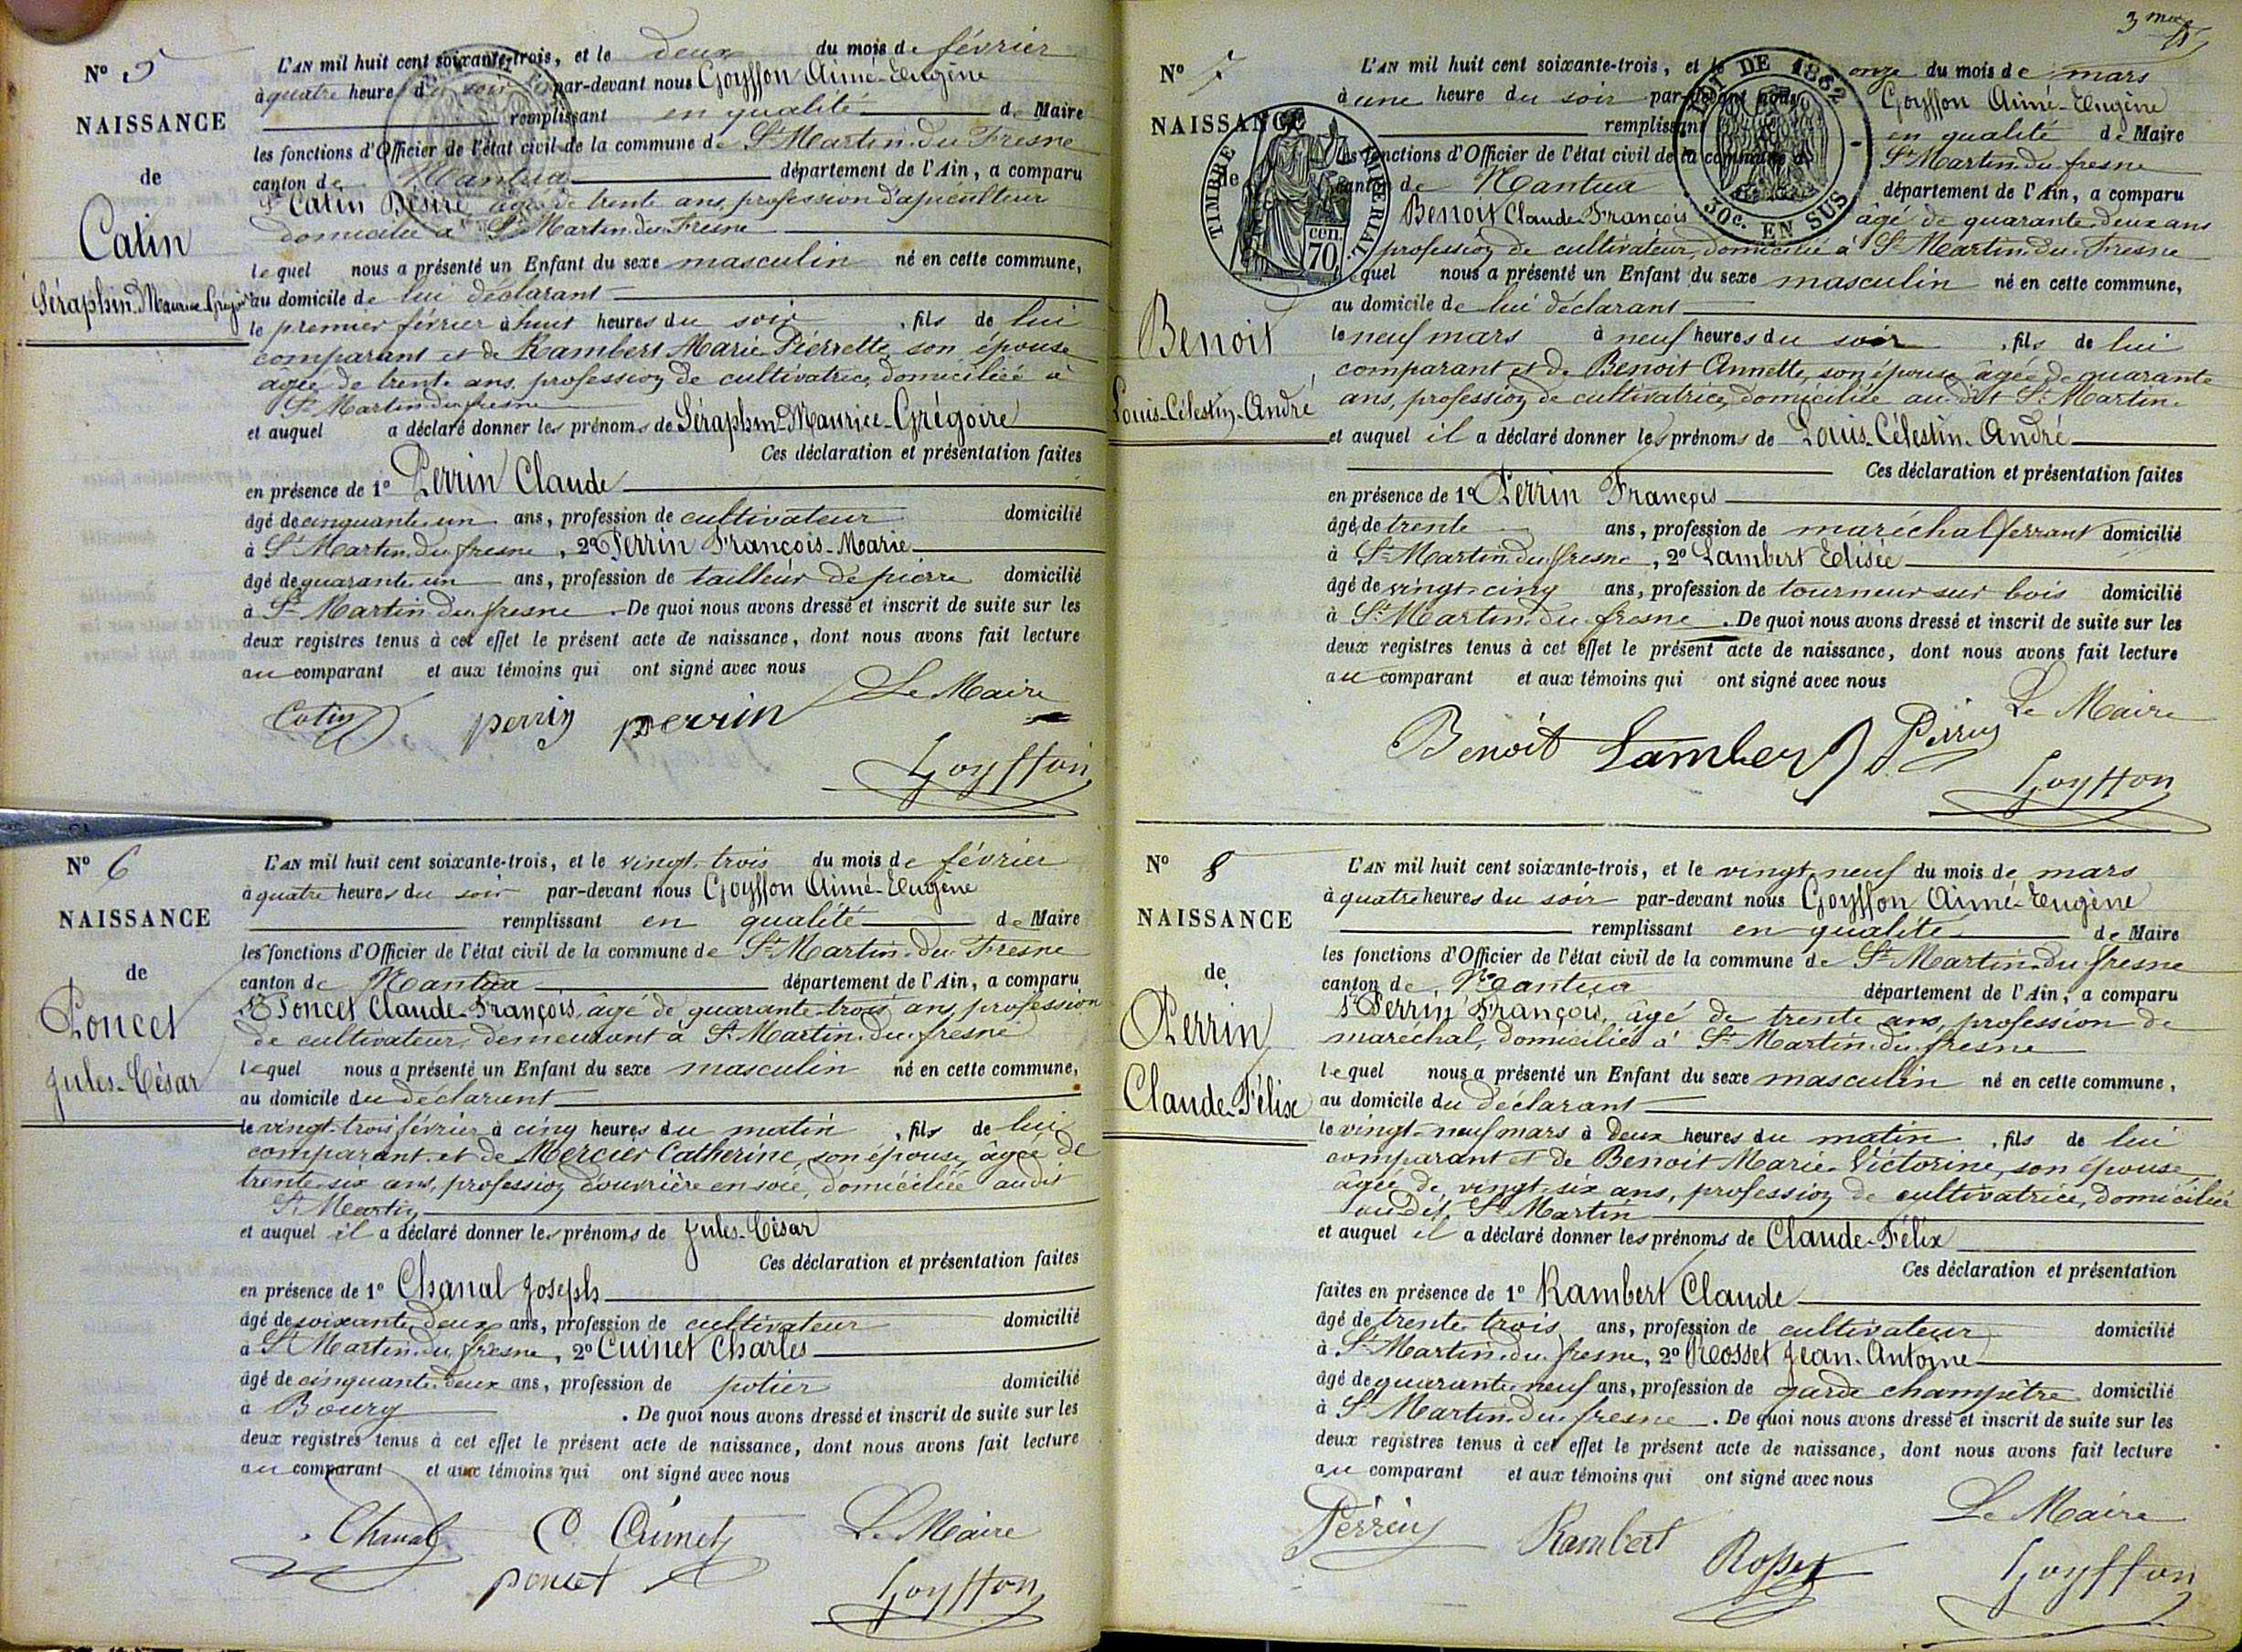 N° 5
NAISSANCE
de
Catin
Séraphin-Maurice-Grégoire
L'AN mil huit cent soixante-trois, et le deux du mois de février
à quatre heures du soir par-devant nous Goyffon Aimé-Eugène
remplissant en qualité de Maire
les fonctions d'Officier de l'état civil de la commune de St Martin-du-Fresne
canton de Nantua département de l'Ain, a comparu
Sr Catin Désiré âgé de trente ans, profession d'apiculteur
domicilié à St Martin-du-Fresne
lequel nous a présenté un Enfant du sexe masculin né en cette commune,
au domicile de lui déclarant
le premier février à huit heures du soir, fils de lui
comparant et de Rambert Marie-Pierrette, son épouse
âgée de trente ans, profession de cultivatrice, domiciliée à
St Martin-du-fresne
et auquel a déclaré donner les prénoms de Séraphin-Maurice-Grégoire
Ces déclaration et présentation faites
en présence de 1° Perrin Claude
âgé de cinquante-un ans, profession de cultivateur domicilié
à St Martin-du-fresne, 2° Perrin François-Marie
âgé de quarante-un ans, profession de tailleur de pierre domicilié
à St Martin-du-fresne. De quoi nous avons dressé et inscrit de suite sur les
deux registres tenus à cet effet le présent acte de naissance, dont nous avons fait lecture
au comparant et aux témoins qui ont signé avec nous
Le Maire
Catin perrin perrin
Goyffon
N° 6
NAISSANCE
de
Poncet
Jules-César
L'AN mil huit cent soixante-trois, et le vingt-trois du mois de février
à quatre heures du soir par-devant nous Goyffon Aimé-Eugène
remplissant en qualité de Maire
les fonctions d'Officier de l'état civil de la commune de St Martin-du-Fresne
canton de Nantua département de l'Ain, a comparu
Sr Poncet Claude-François, âgé de quarante-trois ans, profession
de cultivateur, demeurant à St Martin-du-fresne
lequel nous a présenté un Enfant du sexe masculin né en cette commune,
au domicile du déclarant
le vingt-trois février à cinq heures du matin, fils de lui
comparant et de Mercier Catherine, son épouse, âgée de
trente-six ans, profession d'ouvrière en soie, domiciliée audit
St Martin
et auquel il a déclaré donner les prénoms de Jules-César
Ces déclaration et présentation faites
en présence de 1° Chanal Joseph
âgé de soixante-deux ans, profession de cultivateur domicilié
à St Martin-du-fresne, 2° Cuinet Charles
âgé de cinquante-deux ans, profession de potier domicilié
à Bourg. De quoi nous avons dressé et inscrit de suite sur les
deux registres tenus à cet effet le présent acte de naissance, dont nous avons fait lecture
au comparant et aux témoins qui ont signé avec nous
Chanal C. Cuinet Le Maire
poncet Goyffon
N° 7
NAISSANCE
de
TIMBRE IMPÉRIAL
70 cen.
LOI DE 1862
30c. EN SUS
Benoit
Louis-Célestin-André
L'AN mil huit cent soixante-trois, et le onze du mois de mars
à une heure du soir par-devant nous Goyffon Aimé-Eugène
remplissant en qualité de Maire
les fonctions d'Officier de l'état civil de la commune de St Martin-du-fresne
canton de Nantua département de l'Ain, a comparu
Benoit Claude-François âgé de quarante-deux ans
profession de cultivateur, domicilié à St Martin-du-Fresne
lequel nous a présenté un Enfant du sexe masculin né en cette commune,
au domicile de lui déclarant
le neuf mars à neuf heures du soir, fils de lui
comparant et de Benoit Annette, son épouse âgée de quarante
ans, profession de cultivatrice, domiciliée au dit St Martin.
et auquel il a déclaré donner les prénoms de Louis-Célestin-André
Ces déclaration et présentation faites
en présence de 1° Perrin François
âgé de trente ans, profession de maréchal ferrant domicilié
à St Martin-du-fresne, 2° Lambert Elisée
âgé de vingt-cinq ans, profession de tourneur sur bois domicilié
à St Martin-du-fresne. De quoi nous avons dressé et inscrit de suite sur les
deux registres tenus à cet effet le présent acte de naissance, dont nous avons fait lecture
au comparant et aux témoins qui ont signé avec nous
Le Maire
Benoit Lambert Perrin
Goyffon
N° 8
NAISSANCE
de
Perrin
Claude-Félix
L'AN mil huit cent soixante-trois, et le vingt-neuf du mois de mars
à quatre heures du soir par-devant nous Goyffon Aimé-Eugène
remplissant en qualité de Maire
les fonctions d'Officier de l'état civil de la commune de St Martin-du-fresne
canton de Nantua département de l'Ain, a comparu
Sr Perrin François, âgé de trente ans, profession de
maréchal, domicilié à St Martin-du-fresne
lequel nous a présenté un Enfant du sexe masculin né en cette commune,
au domicile du déclarant
le vingt-neuf mars à deux heures du matin, fils de lui
comparant et de Benoit Marie-Victorine, son épouse
âgée de vingt-six ans, profession de cultivatrice, domiciliée
audit St Martin
et auquel il a déclaré donner les prénoms de Claude-Félix
Ces déclaration et présentation
faites en présence de 1° Rambert Claude
âgé de trente-trois ans, profession de cultivateur domicilié
à St Martin-du-fresne, 2° Rosset Jean-Antoine
âgé de quarante-neuf ans, profession de garde champêtre domicilié
à St Martin-du-fresne. De quoi nous avons dressé et inscrit de suite sur les
deux registres tenus à cet effet le présent acte de naissance, dont nous avons fait lecture
au comparant et aux témoins qui ont signé avec nous
Le Maire
Perrin Rambert Rosset
Goyffon